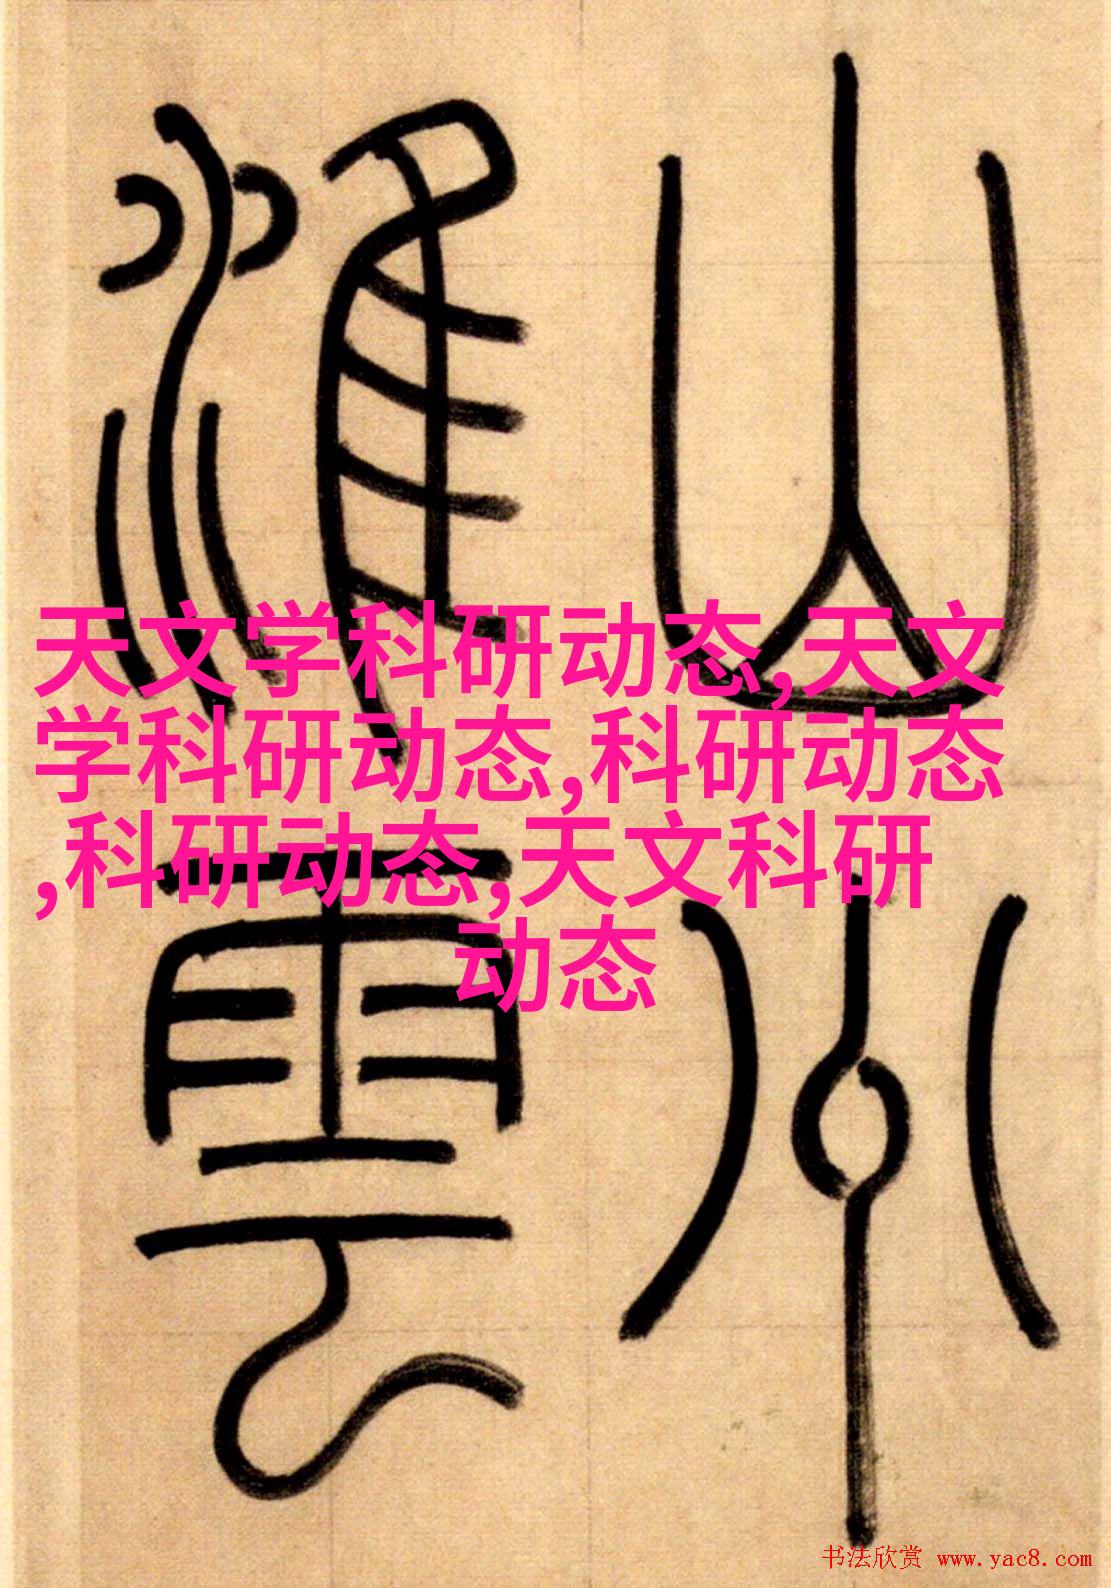 山州
淮雲
天文学科研动态,天文
学科研动态,科研动态
,科研动态,天文科研
动态
书法欣赏 www.yac8.com